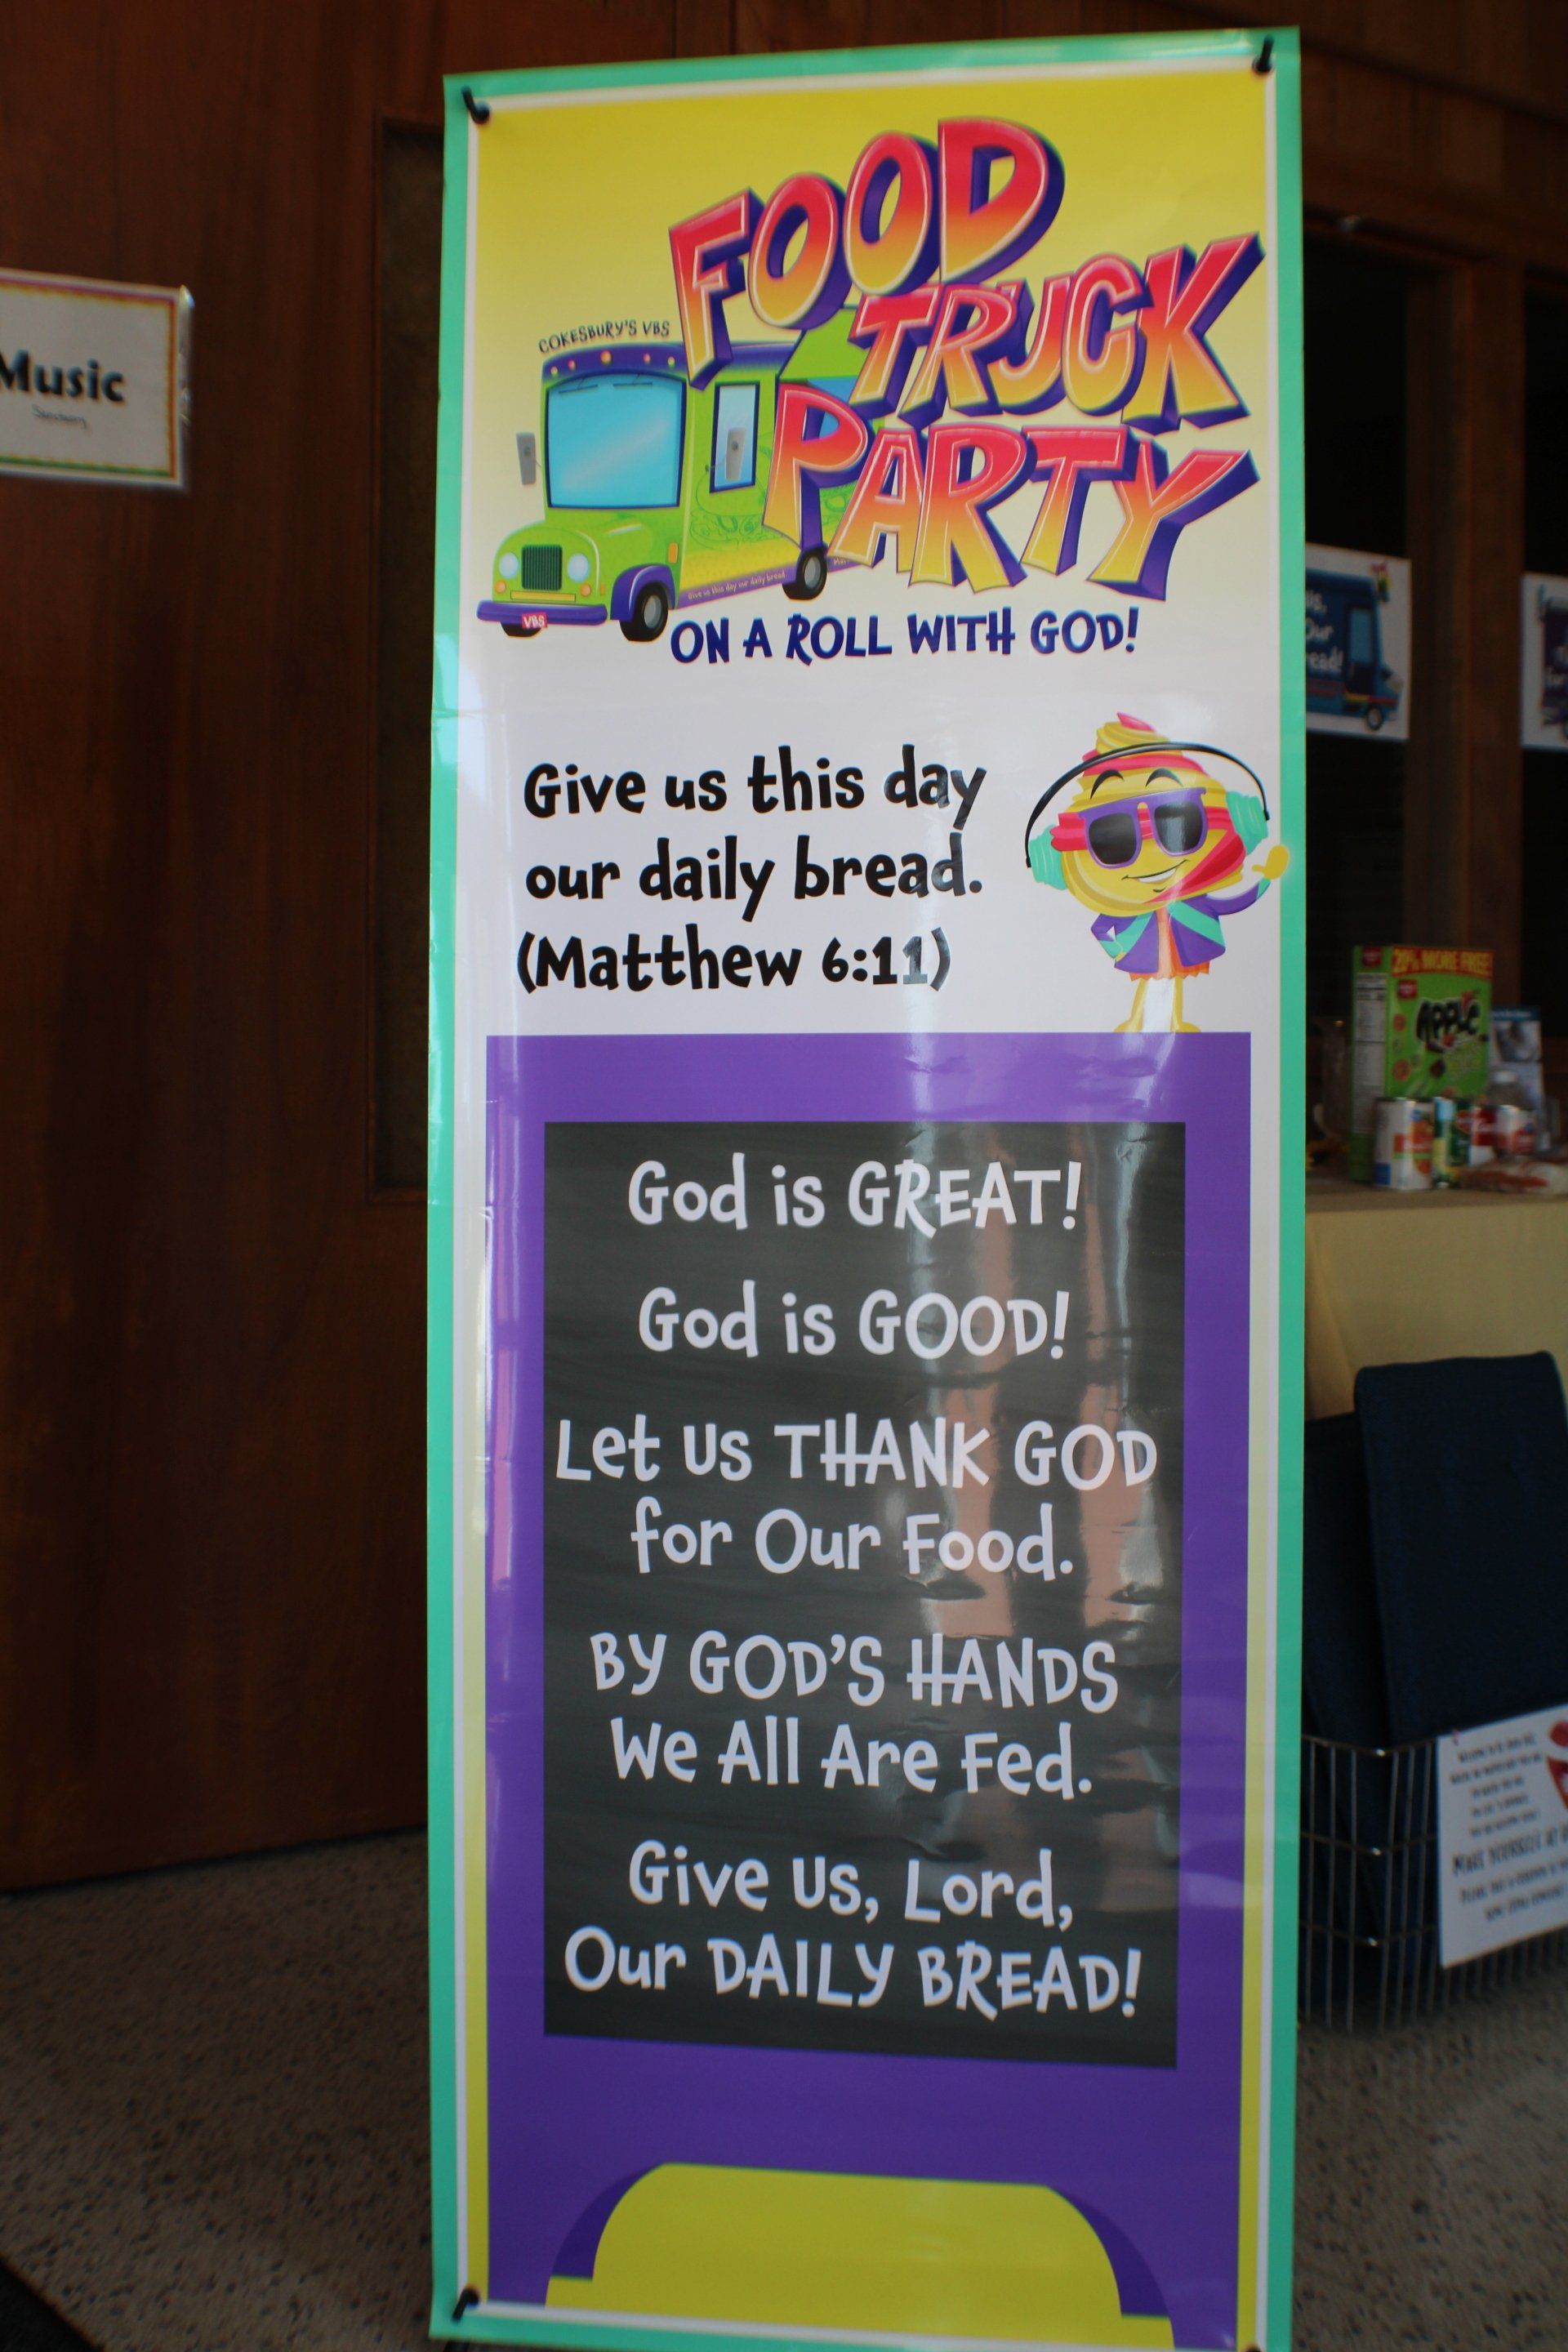 COKESBURY'S VBS
FOOD
TRUCK
PARTY
Give us this day our daily bread
VBS
ON A ROLL WITH GOD!
Give us this day
our daily bread.
(Matthew 6:11)
God is GREAT!
God is GOOD!
Let us THANK GOD
for Our Food.
BY GOD'S HANDS
We All Are Fed.
Give Us, Lord,
Our DAILY BREAD!
Music
Our
20% MORE FREE!
APPLE